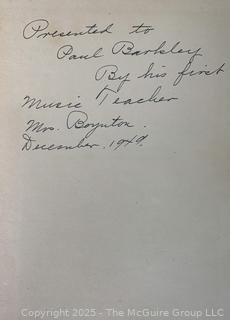 Presented to
Paul Barkley
By his first
Music Teacher
Mrs. Boynton.
December. 1949.
Copyright 2025 - The McGuire Group LLC